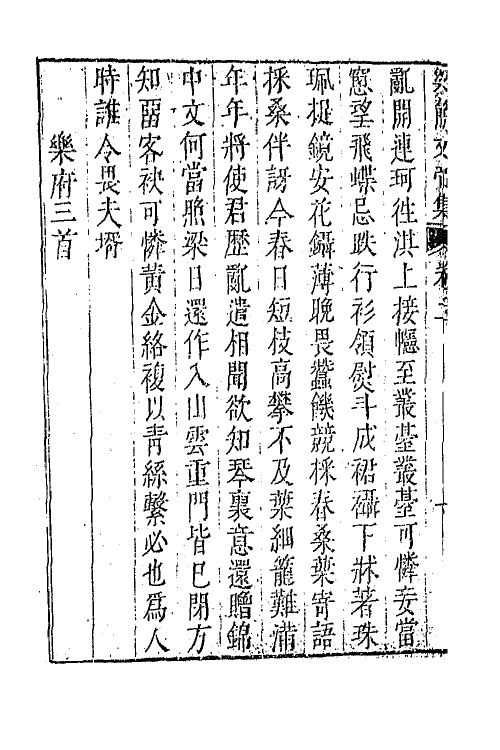 亂開連珂徃淇上接幰至叢䑓叢䑓可憐妾當
窓望飛蝶忌跌行衫領熨斗成裙襵下牀著珠
珮捉鏡安花鑷薄晚畏蠶饑競採春桑葉寄語
採桑伴訝今春日短枝高攀不及葉細籠難滿
年年將使君歷亂遣相聞欲知琴裏意還贈錦
中文何當照梁日還作入山雲重門皆已閉方
知留客袂可憐黃金絡複以青絲繫必也爲人
時誰令畏夫壻
樂府三首